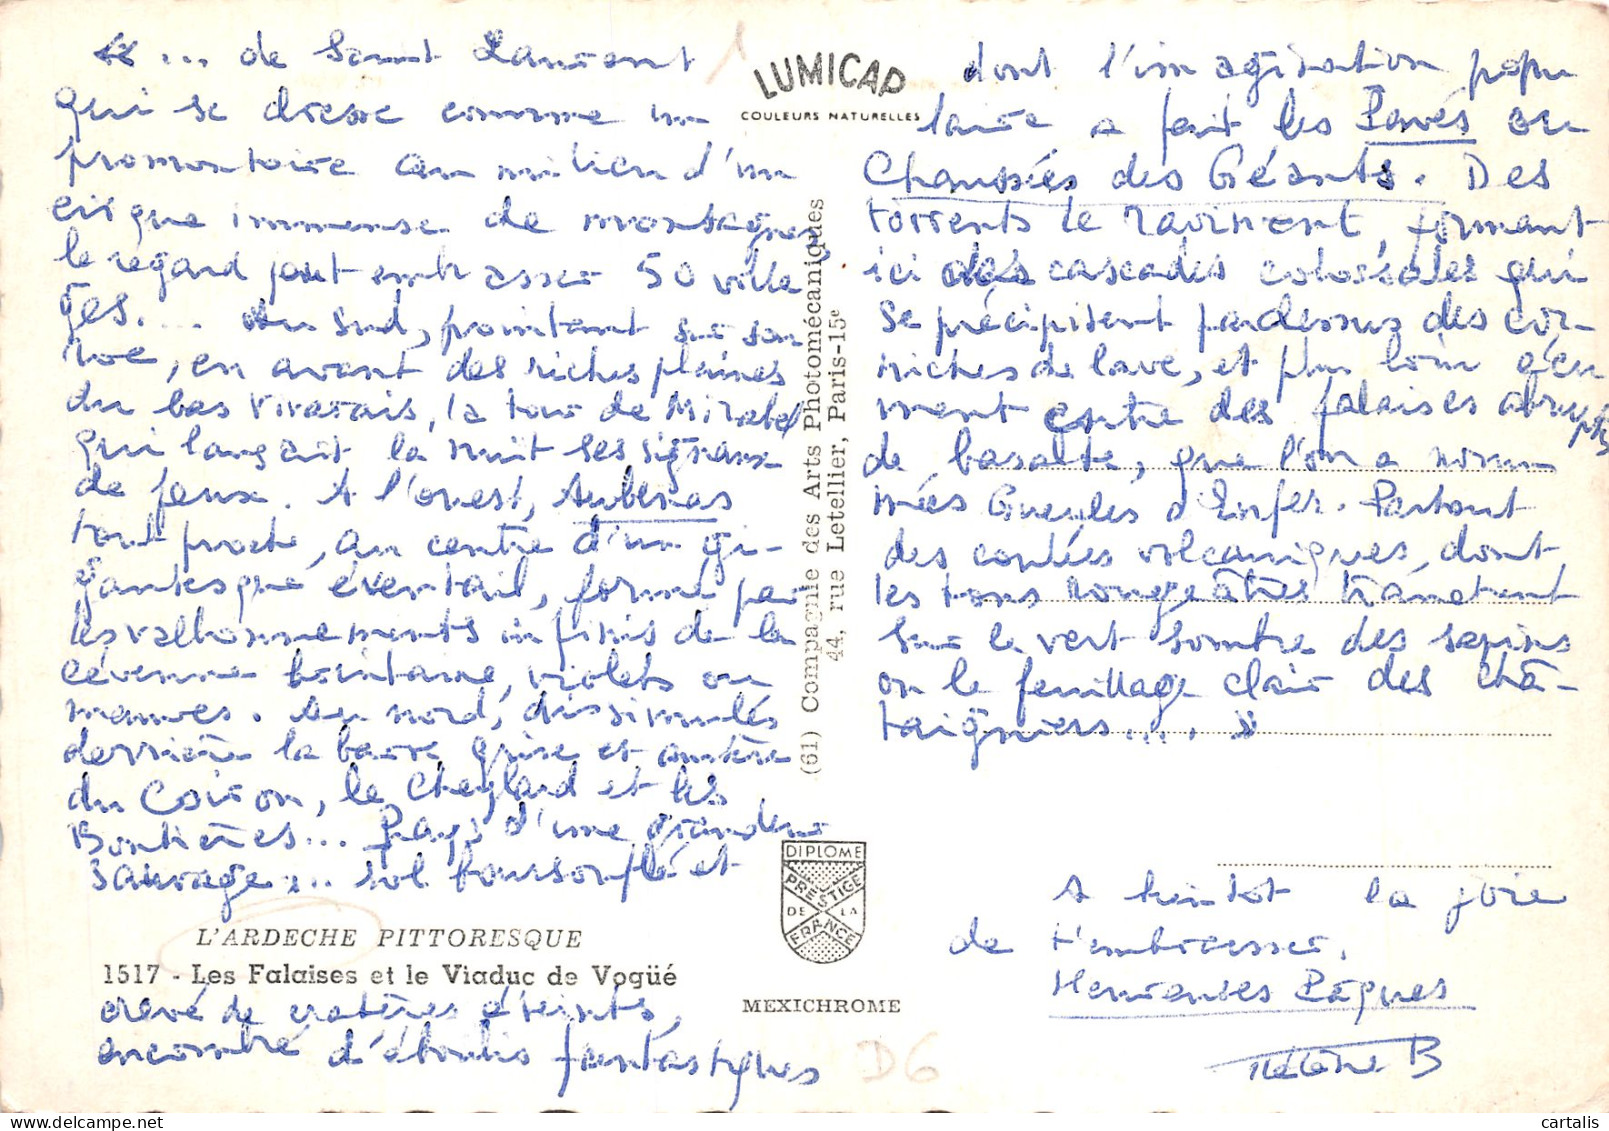 « ... de Saint Laurent
qui se dresse comme un
promontoire au milieu d'un
cirque immense de montagnes
le regard peut embrasser 50 villa
ges.... Au Sud, pointant sur son
roc, en avant des riches plaines
du bas Vivarais, la tour de Mirabel
qui lançait la nuit ses signaux
de feux. A l'ouest, Aubenas
tout proche, au centre d'un gi-
gantesque éventail, formé par
les vallonnements infinis de la
cévenne lointaine, violets ou
mauves. Au nord, dissimulés
derrière la barre grise et austère
du Coiron, le Cheylard et les
Boutières... Pays d'une grandeur
sauvage... sol boursouflé et
L'ARDECHE PITTORESQUE
1517 - Les Falaises et le Viaduc de Vogüé
crevé de cratères éteints,
encombré d'éboulis fantastiques
LUMICAP
COULEURS NATURELLES
(61) Compagnie des Arts Photomécaniques
44, rue Letellier, Paris-15e
DIPLOME
PRESTIGE
DE LA
FRANCE
MEXICHROME
D6
dont l'imagination popu
laire a fait les Pavés ou
Chaussées des Géants. Des
torrents le ravinent, formant
ici des cascades colossales qui
se précipitent pardessus des cor-
niches de lave, et plus loin écu
ment contre des falaises abruptes
de basalte, que l'on a nom
mées Gueules d'Enfer. Partout
des coulées volcaniques, dont
les tons rougeâtres tranchent
sur le vert sombre des sapins
ou le feuillage clair des châ-
taigniers.... »
A bientôt la joie
de t'embrasser.
Heureuses Pâques
Hélène B
cartalis.com